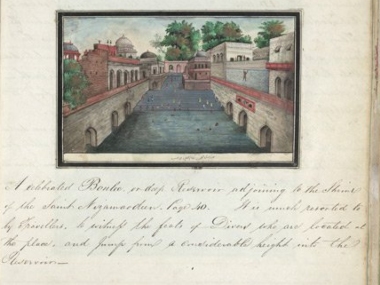 A celebrated Bowlie, or deep Reservoir adjoining to the Shrine
of the Saint Nizamooddeen, Page 40. It is much resorted to
by Travellers, to witness the feats of Divers, who are located at
the place, and jump from a considerable height into the
Reservoir